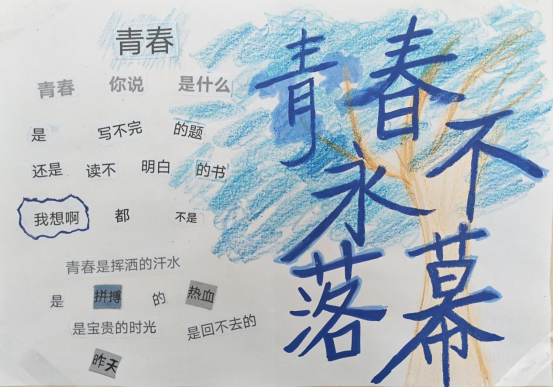 青春
青春 你说 是什么
是 写不完 的题
还是 读不 明白 的书
我想啊 都 不是
青春是挥洒的汗水
是 拼搏 的 热血
是宝贵的时光 是回不去的
昨天
青春
永不
落幕